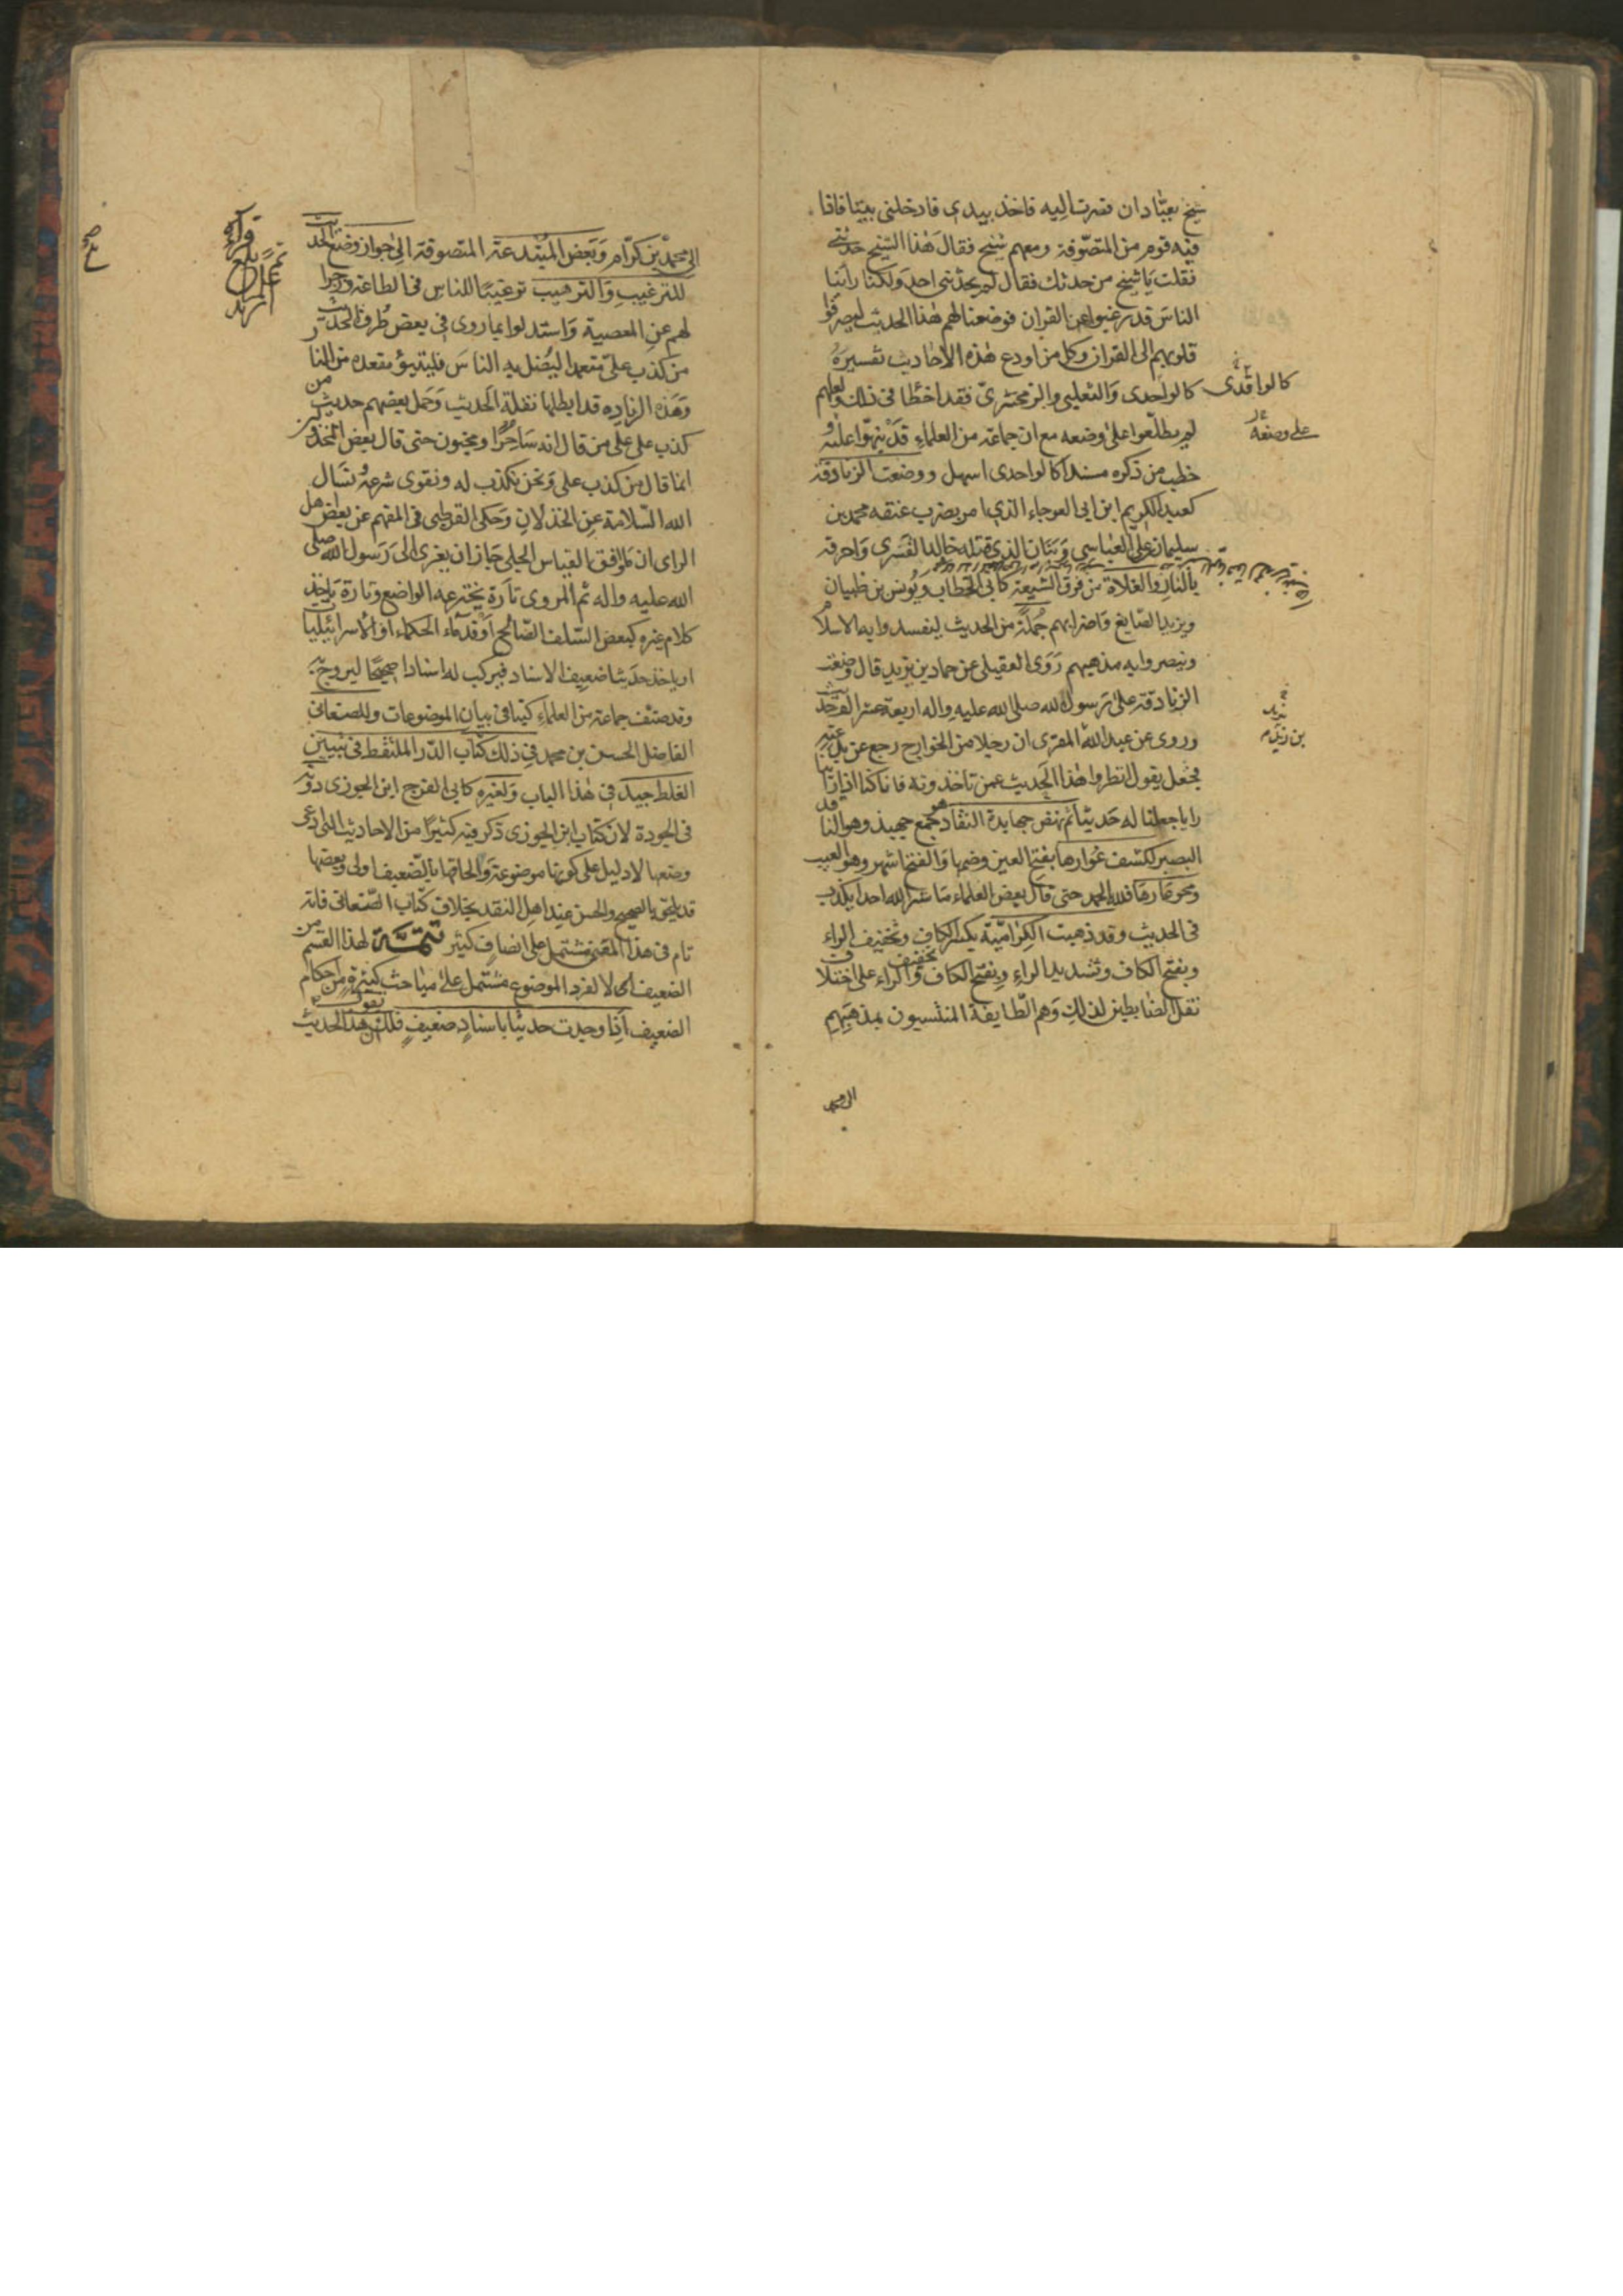 شيخ بعبّادان فصرت اليه فاخذ بيدي فادخلني بيتا فاذا
فيه قوم من المتصّوفة ومعهم شيخ فقال هذا الشيخ حدثني
فقلت يا شيخ من حدثك فقال لم يحدثني احد ولكنا راينا
الناس قد رغبوا عن القران فوضعنا لهم هذا الحديث ليصرفوا
قلوبهم الى القران وكل من اودع هذه الاحاديث تفسيره
كالواحدى والثعلبي والزمخشرىّ فقد اخطا في ذلك ولعلهم
كالواقدى
لم يطلعوا على وضعه مع ان جماعة من العلماء قد نبهوا عليه و
على وضعه
خطب من ذكره مسندا كالواحدى اسهل ووضعت الزنادقة
كعبد الكريم ابن ابى العوجاء الذي امر بضرب عنقه محمد بن
سليمان على العباسي وبنان الذي قتله خالد القسرى واحرقه
بالنار والغلاة من فرق الشيعة كابي الخطاب ويونس بن ظبيان
ويزيد الصايغ واضرابهم جُملةً من الحديث ليفسدوا به الاسلام
وينصروا به مذهبهم رَوَى العقيلى عن حماد بن يزيد قال وضعت
الزنادقة على رسول الله صلى الله عليه واله اربعة عشر الف حديث
يزيد
وروى عن عبد الله المقرى ان رجلا من الخوارج رجع عن بدعته
بن زيد م
فجعل يقول انظروا هذا الحديث عمن تاخذونه فانا كنا اذا راينا
رايا جعلنا له حديثا ثم نهض جهابذة النقاد جمع جهبذ وهو الناقد
البصير لكشف عُوارها بفتح العين وضمها والفتح اشهر وهو العيب
ومحو عارها فلله الحمد حتى قال بعض العلماء ما ستر الله احدا يكذب
في الحديث وقد ذهبت الكِراميّة بكسر الكاف وتخفيف الراء
وبفتح الكاف وتشديد الراء وبفتح الكاف وتخفيف الراء على اختلاف
نقل الضابطين لذلك وهم الطايفة المنتسبون بمذهبهم
الى محمد
الى محمد بن كرّام وبَعض المُبتدعة المتصوفة الى جواز وضع الحديث
للترغيب والترهيب ترغيبًا للناس في الطاعة وزجرا
لهم عن المعصية واستدلوا بما روى في بعض طُرق الحديث
من كذب علىّ متعمدا ليُضل به الناس فليتبوّء مقعده من النار
وهَذه الزياده قد ابطلها نقلة الحديث وحَمل بعضهم حديث من
كذب على على من قال انه سَاحرًا ومجنون حتى قال بعض
انما قال من كذب على ونحن نكذب له ونقوى شرعهُ نسَال
الله السّلامة عن الخذلان وحكى القرطبى في المفهم عن بعض اهل
الراى ان ما وافق القياس الجلي جاز ان يعزى الى رَسول الله صلى
الله عليه واله ثم المروى تارة يخترعه الواضع وتارة ياخذ
كلام غيره كبعض السّلف الصّالح او قدَماء الحكماء او الاسرائيليات
او ياخذ حديثا ضعيف الاسناد فيركب له اسنادا صحيحًا ليروج
وقد صنف جماعة من العلماء كتبا في بيان الموضوعات وللصغانى
الفاضل الحسن بن محمد في ذلك كتاب الدّر الملتقط في تبيين
الغلط جيد في هذا الباب ولغيره كابي الفرج ابن الجوزى دونه
في الجودة لان كتاب ابن الجوزى ذكر فيه كثيرًا من الاحاديث التى ادعى
وضعها لا دليل على كونها موضوعة والحاقها بالضّعيف اولى وبعضها
قد يلحق بالصحيح والحسن عند اهل النقد بخلاف كتاب الصّغانى فانه
تام في هذا المعنى مشتمل على انصاف كثير تتمّة لهذا القسم من
الضعيف اى لا لفرد الموضوع مشتمل على مباحث كثيرة من احكام
الضعيف اذا وجدت حديثا باسنادٍ ضعيفٍ فلك ان تقول هذا الحديث